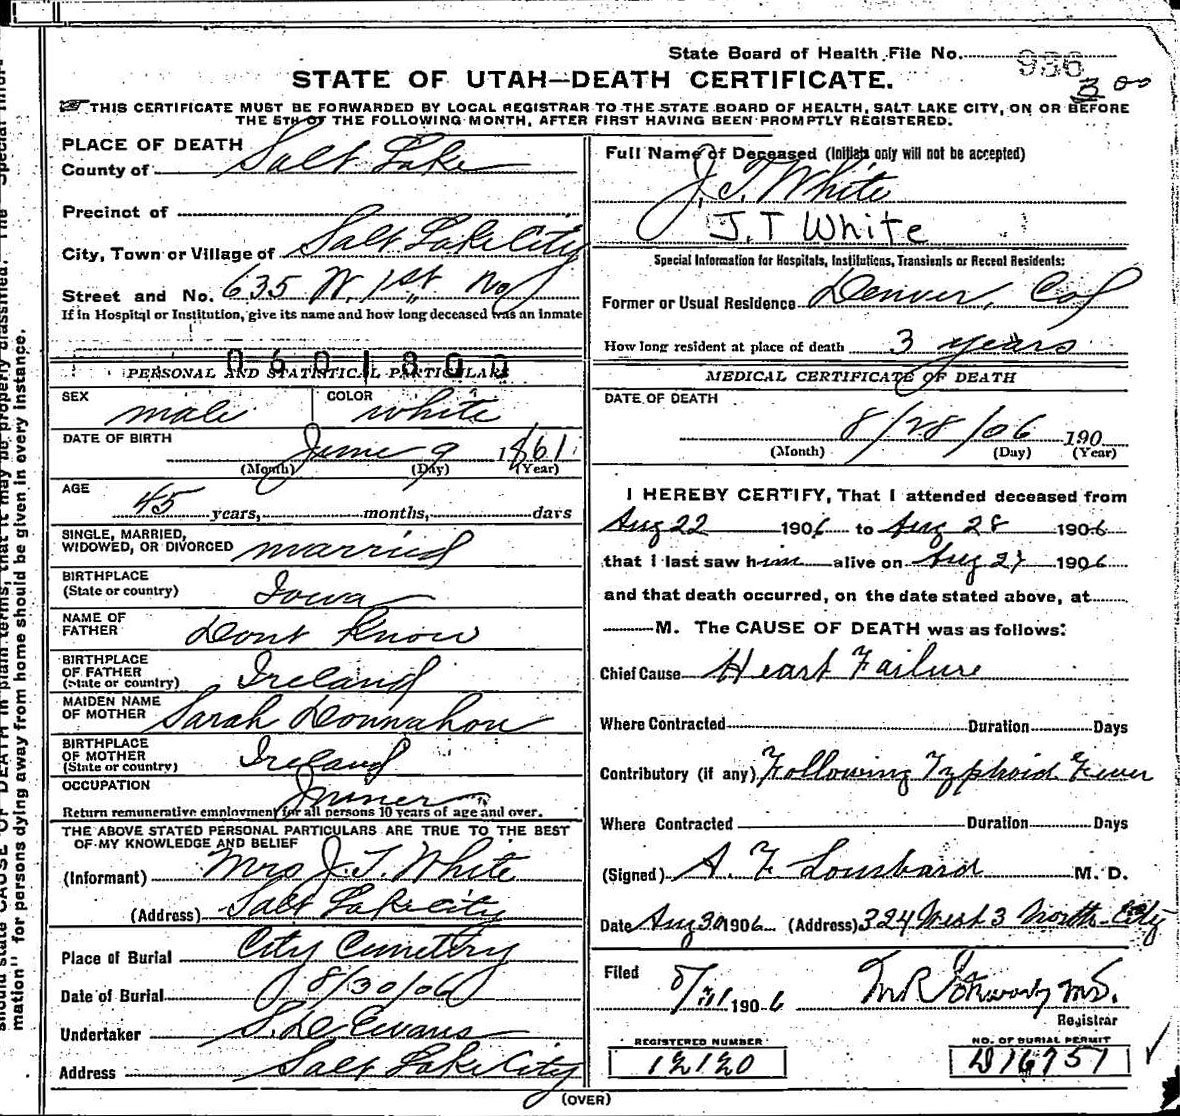 State Board of Health File No. 936
3 00
STATE OF UTAH—DEATH CERTIFICATE.
THIS CERTIFICATE MUST BE FORWARDED BY LOCAL REGISTRAR TO THE STATE BOARD OF HEALTH, SALT LAKE CITY, ON OR BEFORE
THE 5TH OF THE FOLLOWING MONTH, AFTER FIRST HAVING BEEN PROMPTLY REGISTERED.
PLACE OF DEATH
County of Salt Lake
Precinct of
City, Town or Village of Salt Lake City
Street and No. 635 W. 1st No
If in Hospital or Institution, give its name and how long deceased was an inmate
0601800
PERSONAL AND STATISTICAL PARTICULARS
SEX male COLOR white
DATE OF BIRTH June 9 1861
(Month) (Day) (Year)
AGE
45 years, months, days
SINGLE, MARRIED,
WIDOWED, OR DIVORCED married
BIRTHPLACE
(State or country) Iowa
NAME OF
FATHER Dont Know
BIRTHPLACE
OF FATHER
(State or country) Ireland
MAIDEN NAME
OF MOTHER Sarah Donnahou
BIRTHPLACE
OF MOTHER
(State or country) Ireland
OCCUPATION Miner
Return remunerative employment for all persons 10 years of age and over.
THE ABOVE STATED PERSONAL PARTICULARS ARE TRUE TO THE BEST
OF MY KNOWLEDGE AND BELIEF
(Informant) Mrs J. T. White
(Address) Salt Lake City
Place of Burial City Cemetery
Date of Burial 8/30/06
Undertaker S. D. Evans
Address Salt Lake City
Full Name of Deceased (Initials only will not be accepted)
J. T. White
J. T White
Special Information for Hospitals, Institutions, Transients or Recent Residents:
Former or Usual Residence Denver, Col
How long resident at place of death 3 years
MEDICAL CERTIFICATE OF DEATH
DATE OF DEATH
8/28/06 190
(Month) (Day) (Year)
I HEREBY CERTIFY, That I attended deceased from
Aug 22 1906 to Aug 28 1906
that I last saw him alive on Aug 27 1906
and that death occurred, on the date stated above, at
M. The CAUSE OF DEATH was as follows:
Chief Cause Heart Failure
Where Contracted Duration Days
Contributory (if any) Following Typhoid Fever
Where Contracted Duration Days
(Signed) A. F. Lounsbard M. D.
Date Aug 30 1906 (Address) 324 West 3 North City
Filed 8/31 1906
M R MD.
Registrar
REGISTERED NUMBER
12120
NO. OF BURIAL PERMIT
D16751
(OVER)
should state CAUSE OF DEATH in plain terms, that it may be properly classified. The "Special Infor-
mation" for persons dying away from home should be given in every instance.